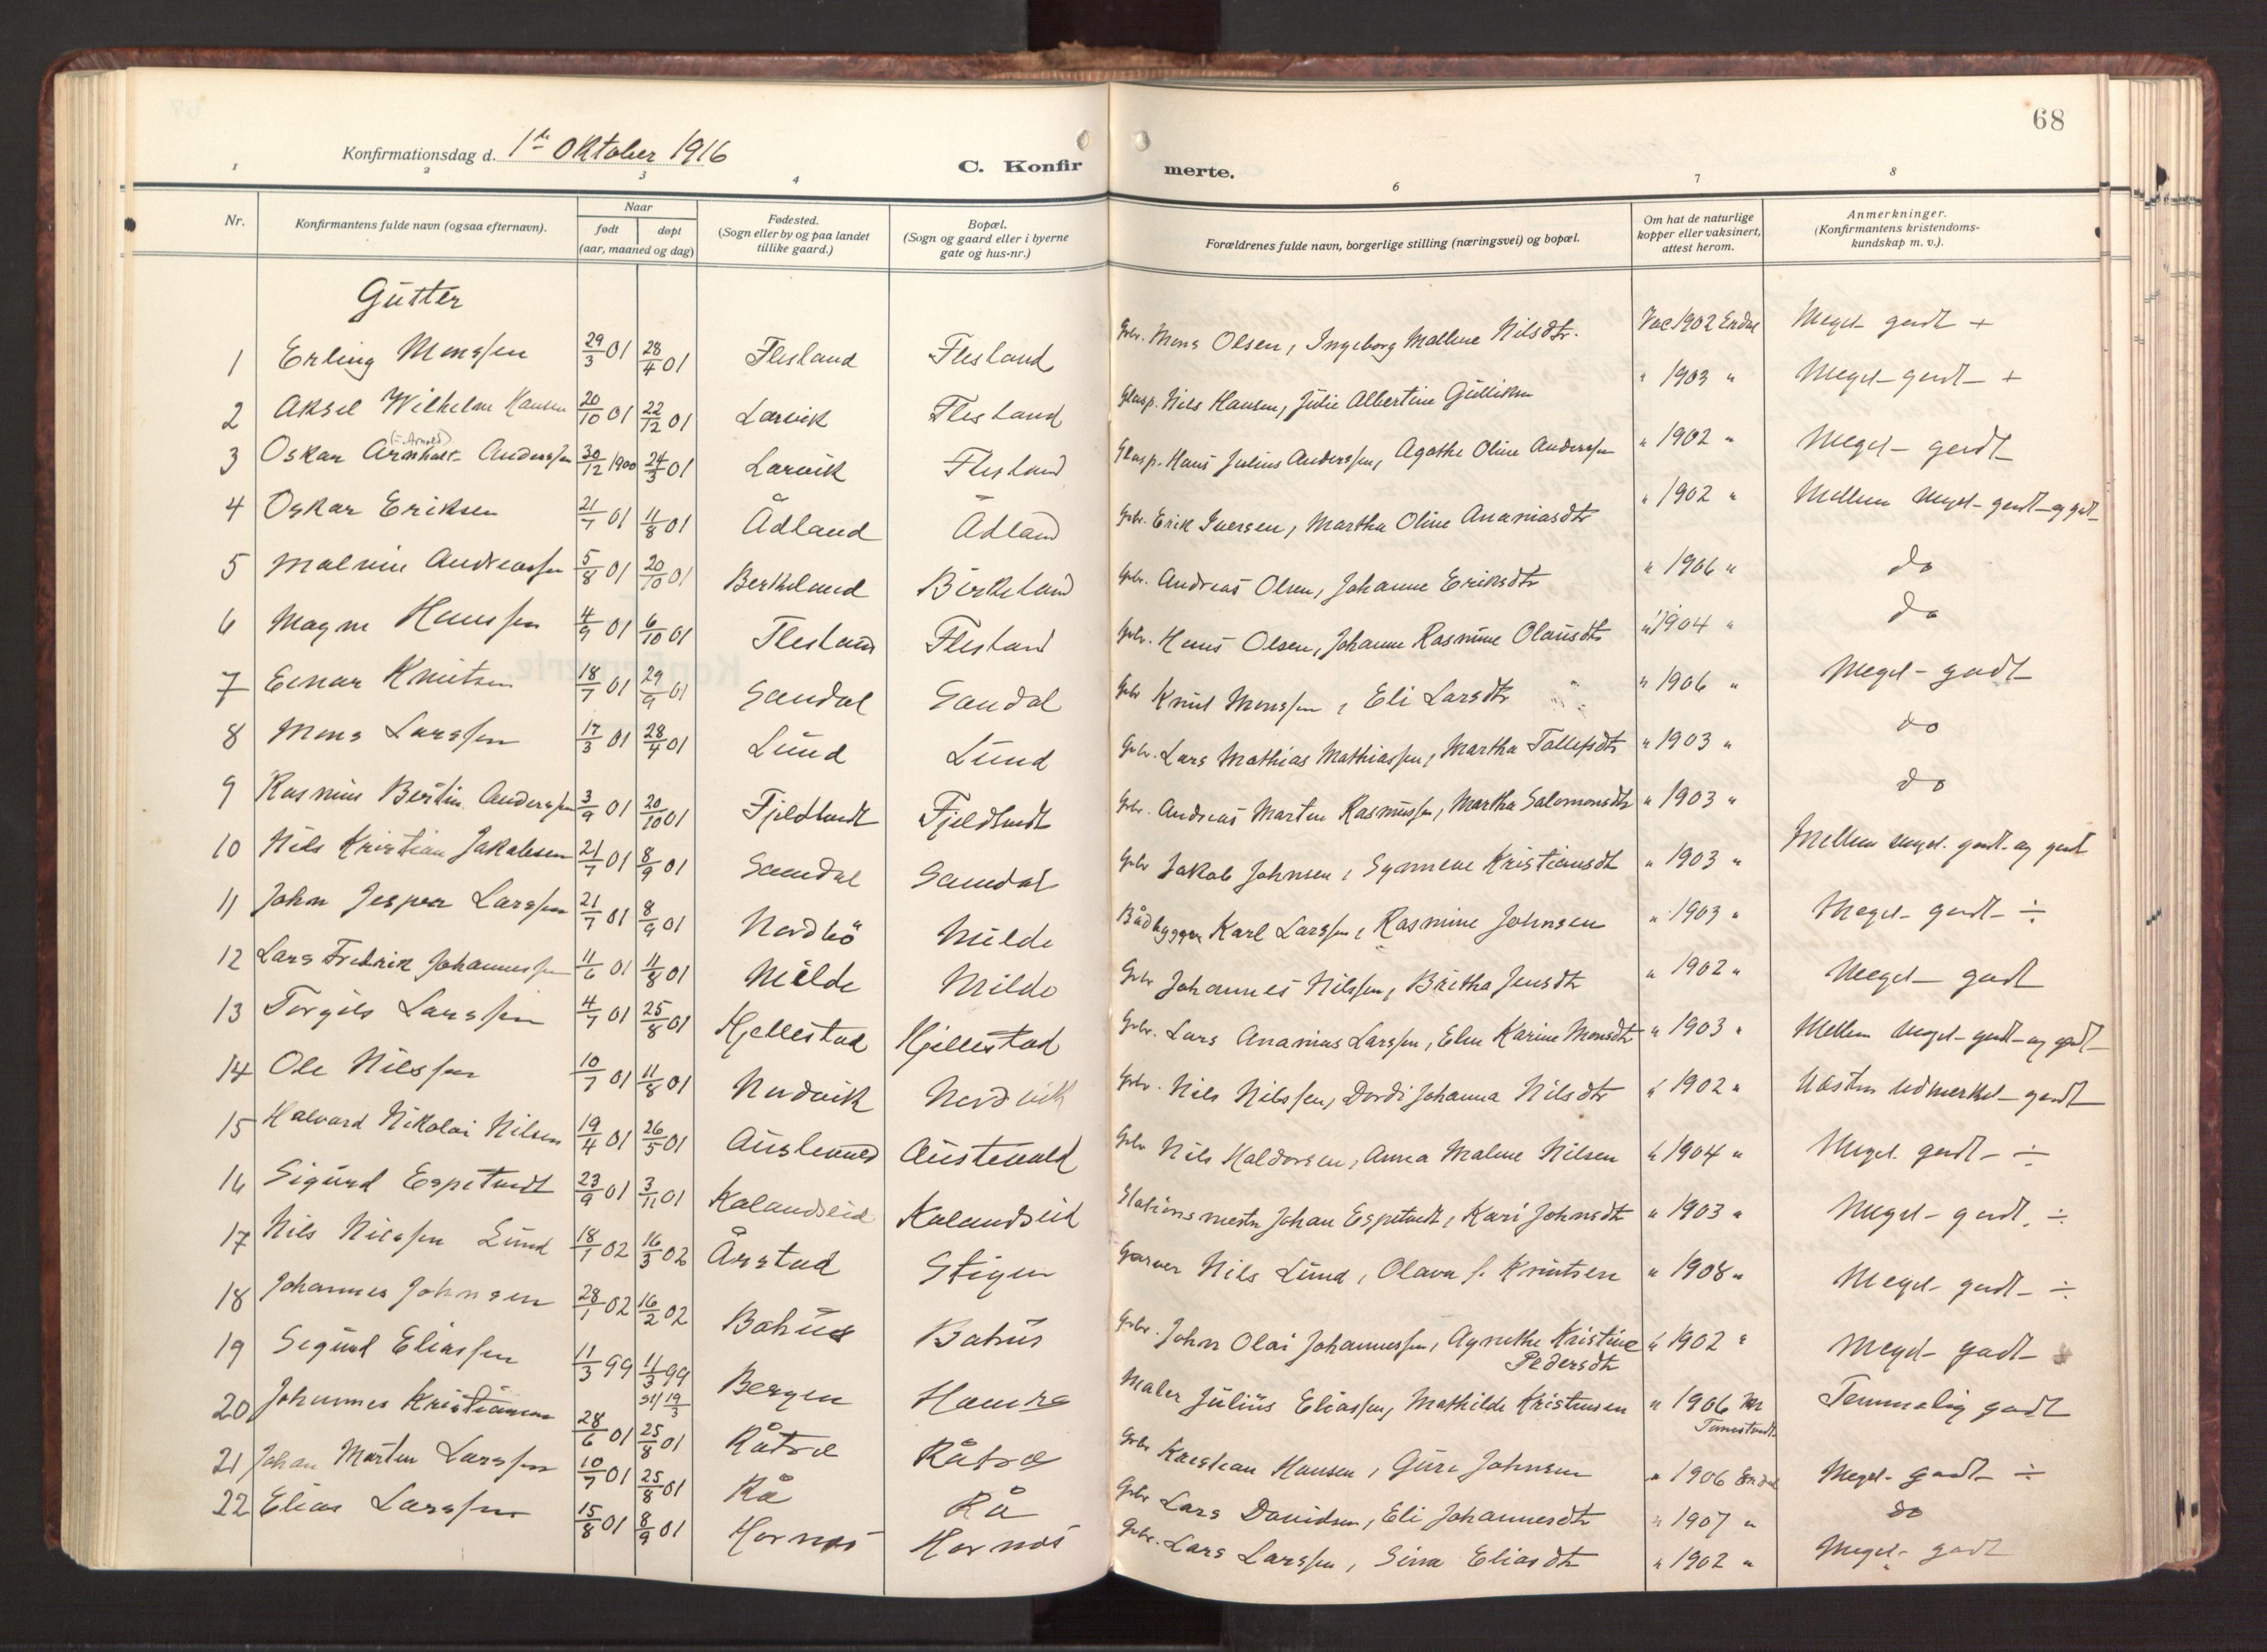 68
Konfirmationsdag d. 1ste Oktober 1916
C. Konfir merte.
1 2 3 4 6 7 8
Nr. Konfirmantens fulde navn (ogsaa efternavn). Naar født døpt (aar, maaned og dag) Fødested. (Sogn eller by og paa landet tillike gaard.) Bopæl. (Sogn og gaard eller i byerne gate og hus-nr.) Forældrenes fulde navn, borgerlige stilling (næringsvei) og bopæl. Om hat de naturlige kopper eller vaksinert, attest herom. Anmerkninger. (Konfirmantens kristendoms-kundskap m. v.).
Gutter
1 Erling Monssen 29/3 01 28/4 01 Flesland Flesland Gbr. Mons Olsen, Ingeborg Malene Nilsdtr. Vac 1902 Endal Meget godt +
2 Aksel Wilhelm Hansen 20/10 01 22/12 01 Larvik Flesland Glasp. Nils Hansen, Julie Albertine Gulliksen " 1903 " Meget godt +
3 Oskar Arnholt (= Arnold) Anderssen 30/12 1900 24/3 01 Larvik Flesland Glasp. Hans Julius Anderssen, Agathe Oline Anderssen " 1902 " Meget godt
4 Oskar Eriksen 21/7 01 11/8 01 Ådland Ådland Gbr. Erik Iversen, Martha Oline Ananiasdtr " 1902 " Mellem meget godt og godt
5 Malvin Andreassen 5/8 01 20/10 01 Berkeland Birkeland Gbr. Andreas Olsen, Johanne Eriksdtr " 1906 " do
6 Magne Hanssen 4/9 01 6/10 01 Flesland Flesland Gbr. Hans Olsen, Johanne Rasmine Olausdtr " 1904 " do
7 Einar Knutsen 18/7 01 29/9 01 Sandal Sandal Gbr Knut Monssen, Eli Larsdtr " 1906 " Meget godt
8 Mons Larssen 17/3 01 28/4 01 Lund Lund Gbr. Lars Mathias Mathiassen, Martha Tollefsdtr " 1903 " do
9 Rasmus Bertin Anderssen 3/9 01 20/10 01 Fjeldtvedt Fjeldtvedt Gbr. Andreas Martin Rasmussen, Martha Salomonsdtr " 1903 " do
10 Nils Kristian Jakobsen 21/7 01 8/9 01 Sandal Sandal Gbr Jakob Johnsen, Synneve Kristiansdtr " 1903 " Mellem meget godt og godt
11 John Jesper Larssen 21/7 01 8/9 01 Nordbö Milde Bådbygger Karl Larssen, Rasmine Johnsen " 1903 " Meget godt ÷
12 Lars Fredrik Johannessen 11/6 01 11/8 01 Milde Milde Gbr Johannes Nilssen, Britha Jensdtr " 1902 " Meget godt
13 Torgils Larssen 4/7 01 25/8 01 Hjellestad Hjellestad Gbr. Lars Ananias Larssen, Elen Karine Monsdtr " 1903 " Mellem meget godt og godt
14 Ole Nilssen 10/7 01 11/8 01 Nordvik Nordvik Gbr. Nils Nilssen, Dordi Johanna Nilsdtr " 1902 " Næsten udmerket godt
15 Halvard Nikolai Nilsen 19/4 01 26/5 01 Austevold Austevold Gbr Nils Haldorsen, Anna Malene Nilsen " 1904 " Meget godt ÷
16 Sigurd Espetvedt 23/9 01 3/11 01 Kalandseid Kalandseid Stationsmester Johan Espetvedt, Kari Johnsdtr " 1903 " Meget godt ÷
17 Nils Nilssen Lund 18/1 02 16/3 02 Årstad Stigen Garver Nils Lund, Olava f. Knutsen " 1908 " Meget godt ÷
18 Johannes Johnsen 28/1 02 16/2 02 Båhus Bahus Gbr. John Olai Johannessen, Agnethe Kristine Pedersdtr " 1902 " Meget godt
19 Sigurd Eliassen 11/3 99 11/3 99 st/ 19/3 Bergen Hamre Maler Julius Eliassen, Mathilde Kristensen " 1906 Tennelig godt
20 Johannes Kristiansen 28/6 01 25/8 01 Råtræ Råtræ Gbr Kristian Hansen, Guri Johnsen " 1906 Endal Meget godt ÷
21 Johan Martin Larssen 10/7 01 25/8 01 Rå Rå Gbr Lars Davidsen, Eli Johannesdtr " 1907 " do
22 Elias Larssen 15/8 01 8/9 01 Hornæs Hornæs Gbr. Lars Larssen, Sina Eliasdtr " 1902 " Meget godt